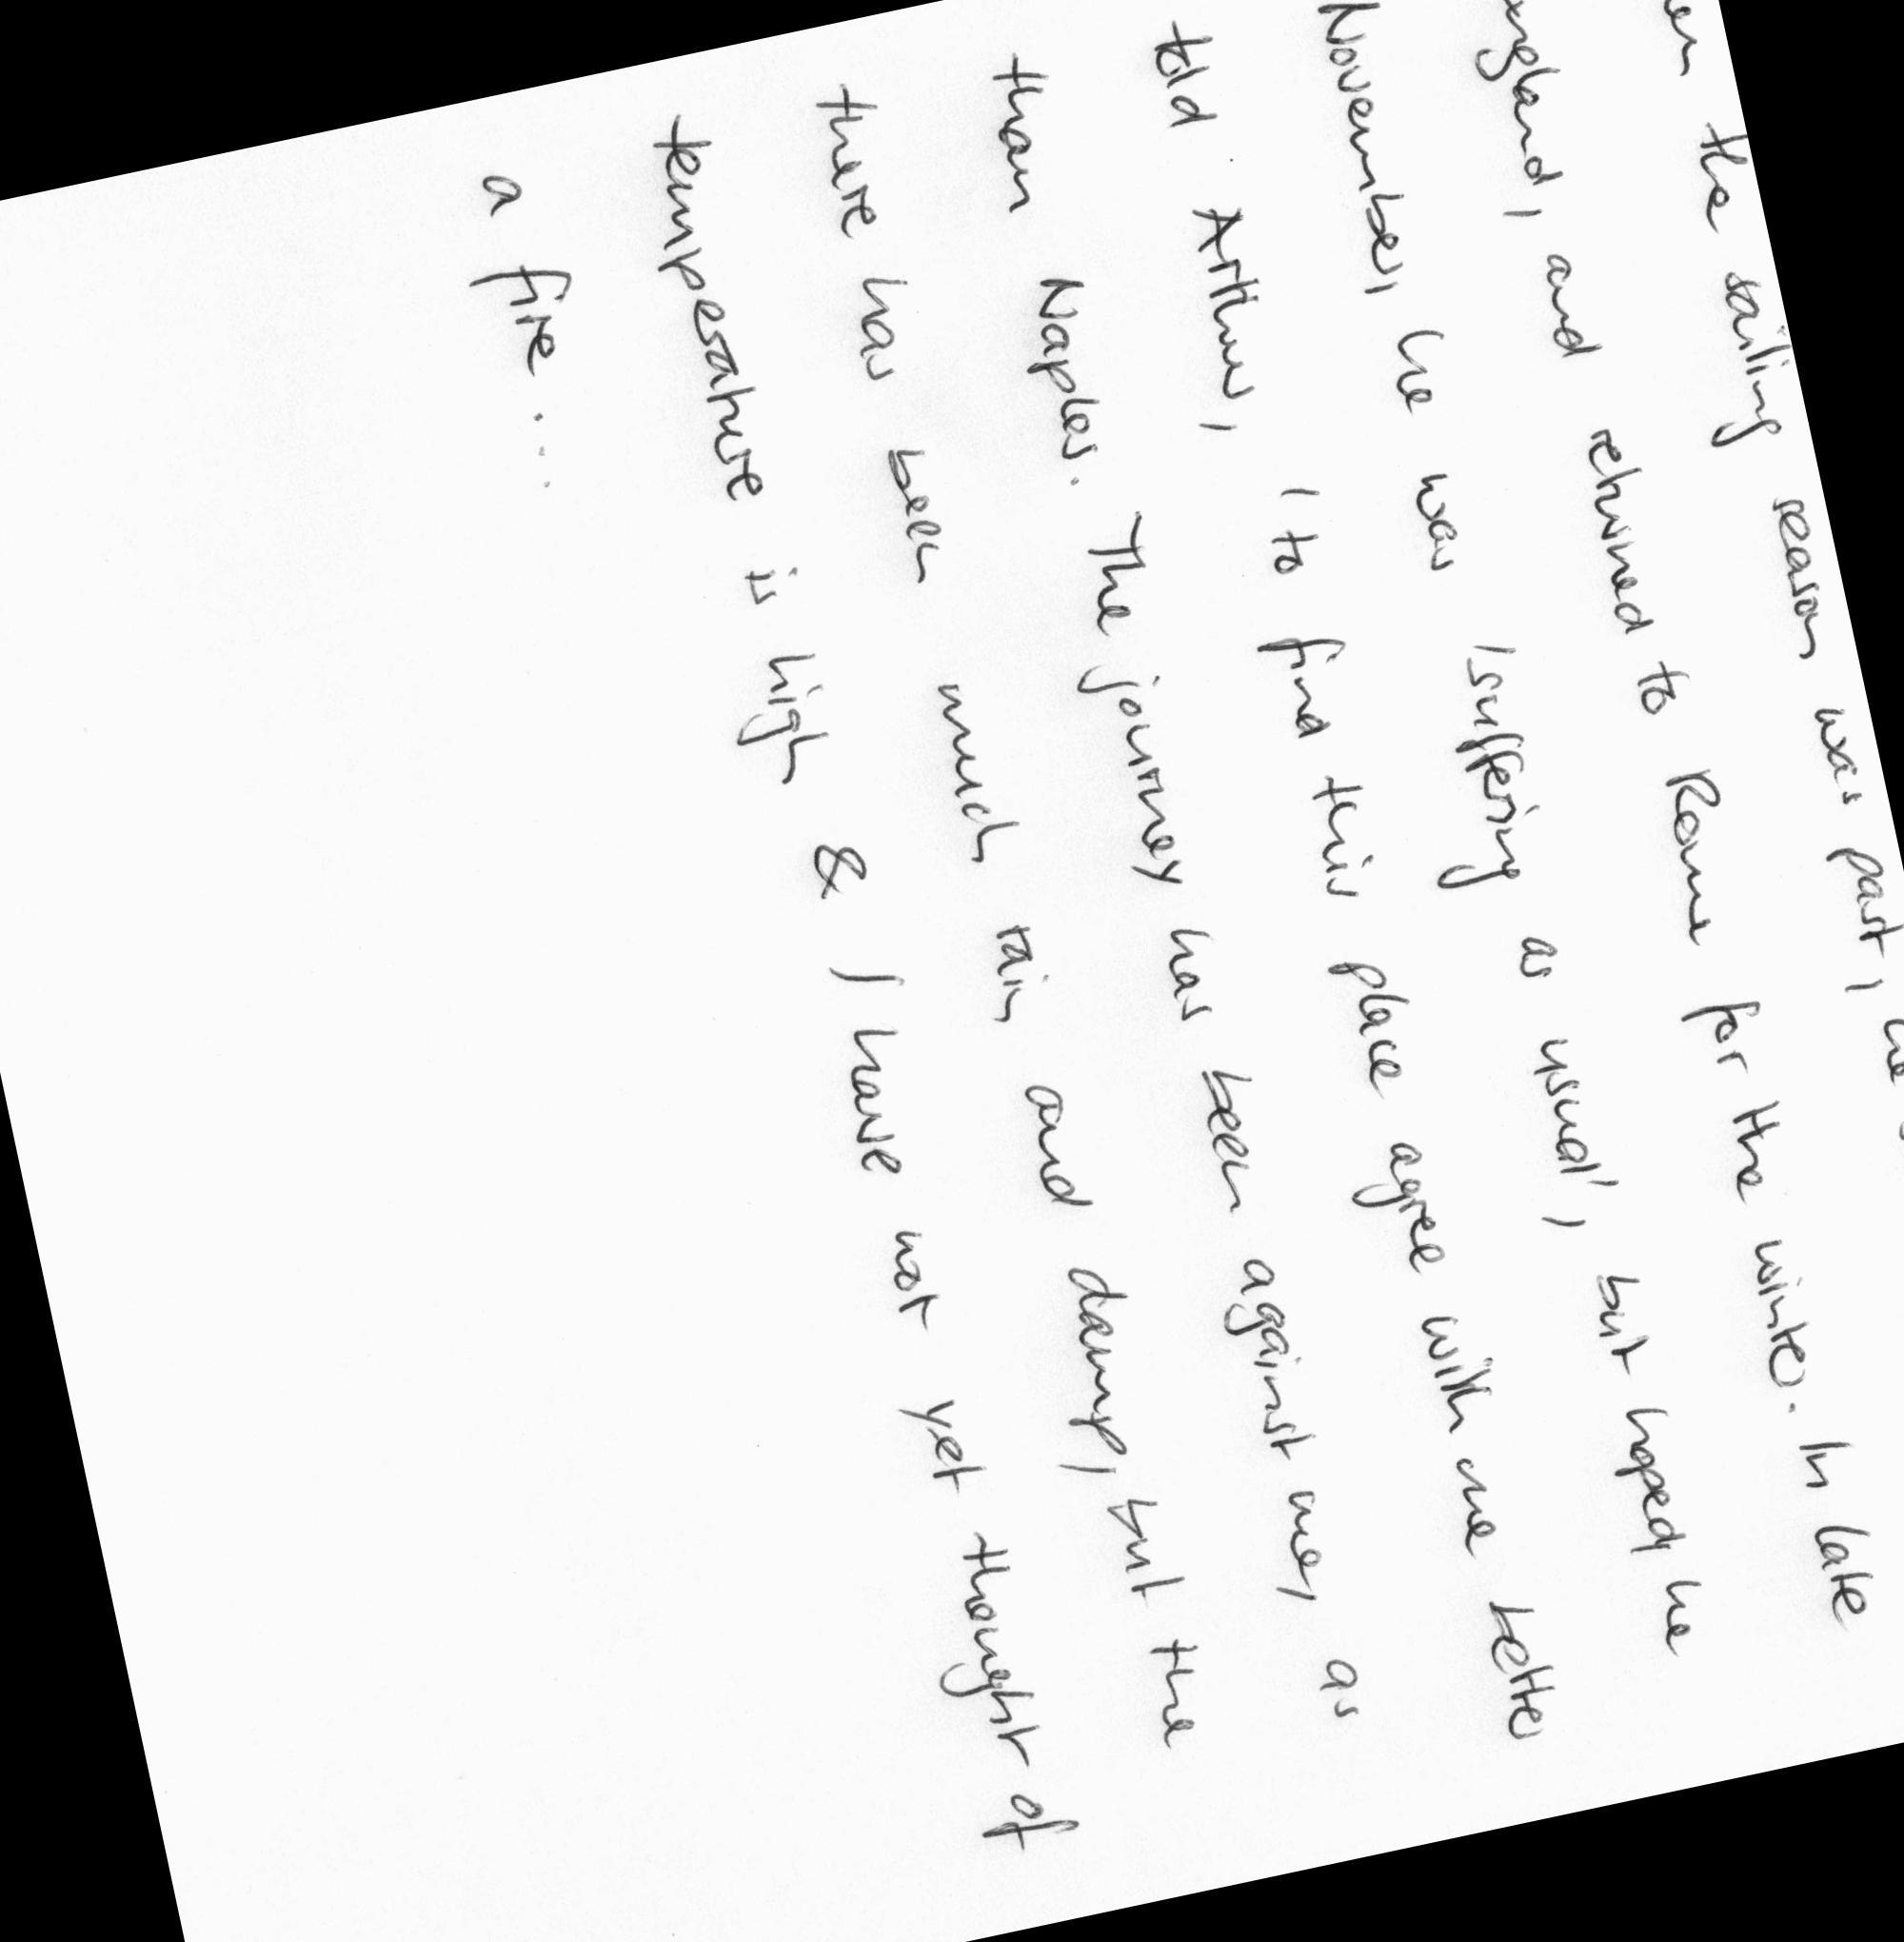 the sailing season was past, he
England, and returned to Rome for the winter. In late
November, he was 'suffering as usual', but hoped, he
told Arthur, 'to find this place agree with me better
than Naples. The journey has been against me, as
there has been much rain and damp, but the
temperature is high & I have not yet thought of
a fire...